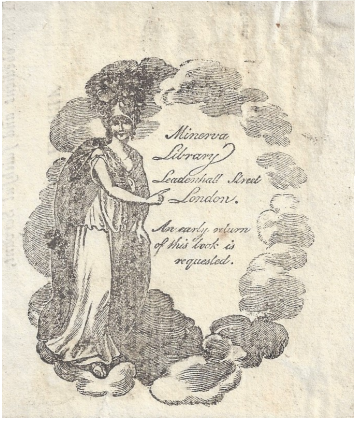 Minerva
Library
Leadenhall Street
London.
An early return
of this book is
requested.